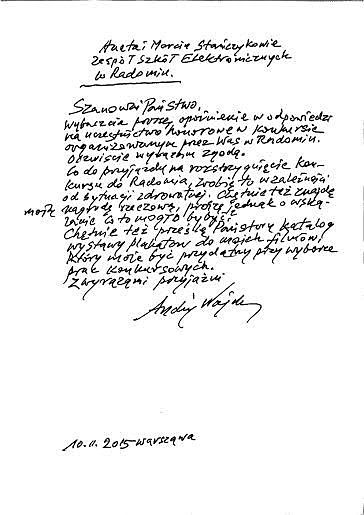 Aneta i Marcin Stańczykowie
Zespół Szkół Elektronicznych
w Radomiu.
Szanowni Państwo,
Wybaczcie proszę opóźnienie w odpowiedzi
na uczestnictwo honorowe w Konkursie
organizowanym przez Was w Radomiu.
Oczywiście wyrażam zgodę.
Co do przyjazdu na rozstrzygnięcie kon-
kursu do Radomia, zrobię to w zależności
od sytuacji zdrowotnej. Chętnie też znajdę
moją nagrodę rzeczową, proszę jednak o wska-
zanie co to mogło by być.
Chętnie też prześlę Państwu katalog
wystawy plakatów do moich filmów,
który może być przydatny przy wyborze
prac konkursowych.
Z wyrazami przyjaźni
Andrzej Wajda
10.11.2015 Warszawa